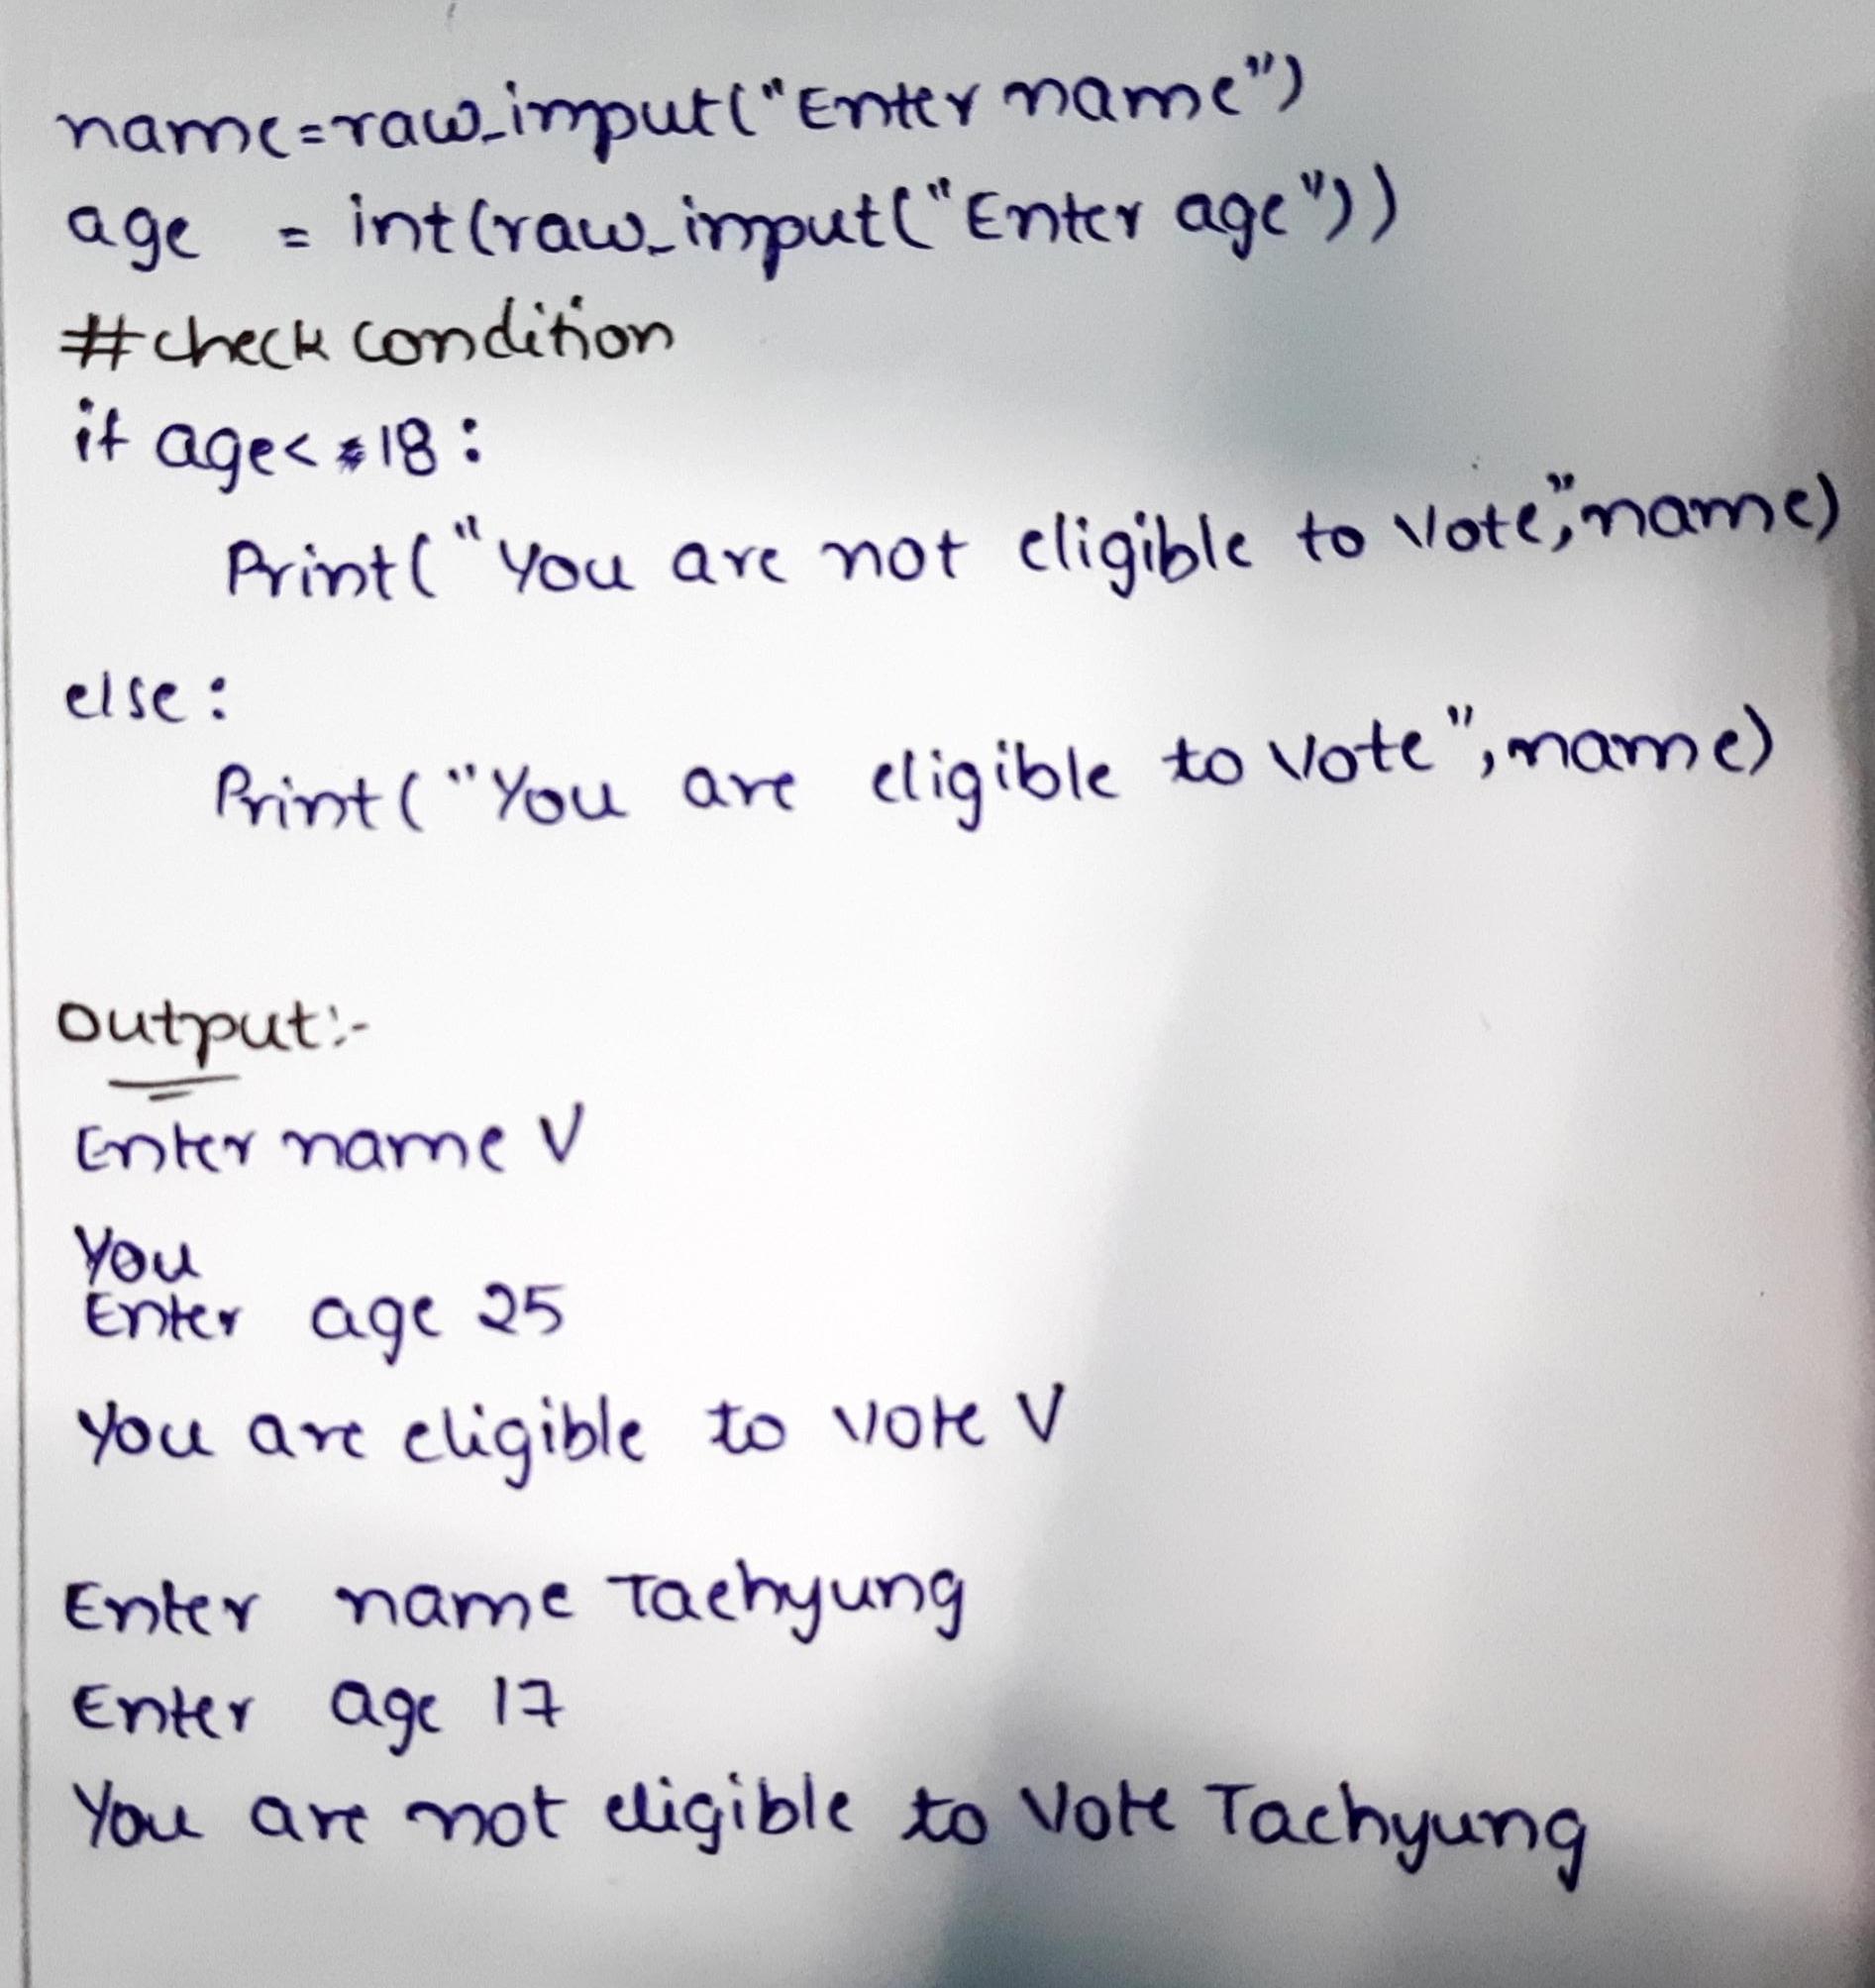 name=raw_input("Enter name")
age = int(raw_input("Enter age"))
#check condition
if age< 18:
Print("You are not eligible to Vote",name)
else:
Print("You are eligible to Vote",name)
Output:-
Enter name V
You
Enter age 25
You are eligible to vote V
Enter name Taehyung
Enter age 17
You are not eligible to Vote Taehyung